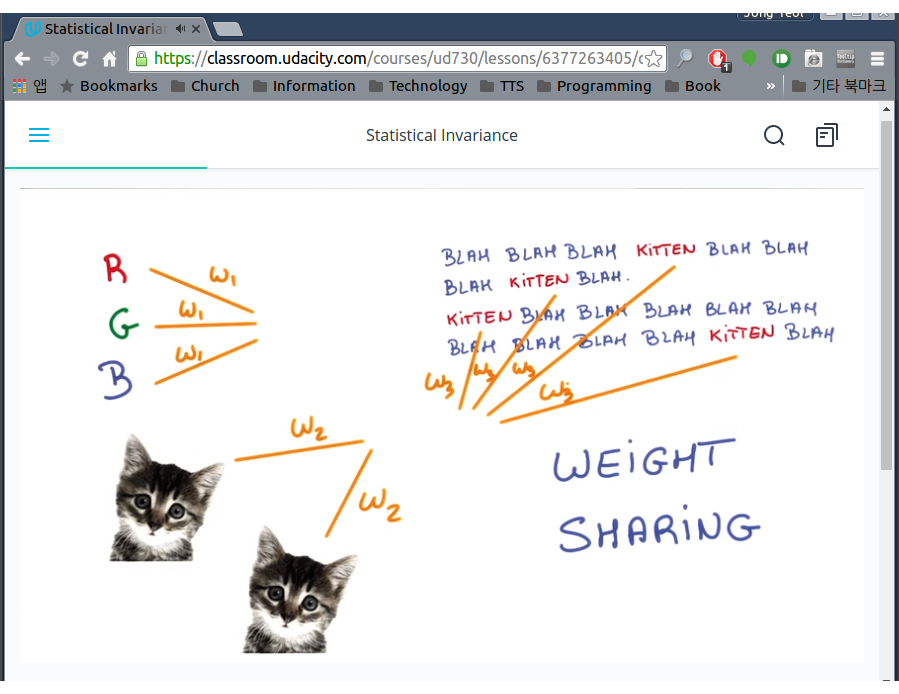 Jong Yeol
Statistical Invaria
https://classroom.udacity.com/courses/ud730/lessons/6377263405/c
1
앱 Bookmarks Church Information Technology TTS Programming Book » 기타 북마크
Statistical Invariance
R W1
G W1
B W1
BLAH BLAH BLAH KITTEN BLAH BLAH
BLAH KITTEN BLAH.
KITTEN BLAH BLAH BLAH BLAH BLAH
BLAH BLAH BLAH BLAH KITTEN BLAH
W3 W3 W3 W3
W2
W2
WEIGHT
SHARING